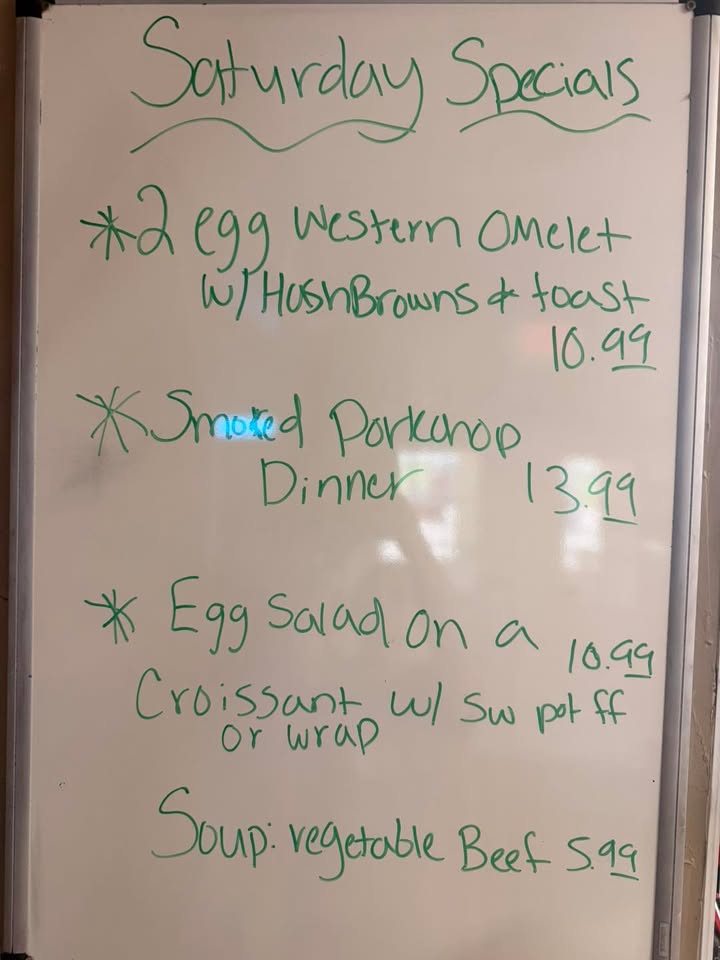 Saturday Specials
* 2 egg Western Omelet
w/ HashBrowns & toast
10.99
* Smoked Porkchop
Dinner 13.99
* Egg Salad on a 10.99
Croissant w/ Sw pot ff
or wrap
Soup: vegetable Beef 5.99